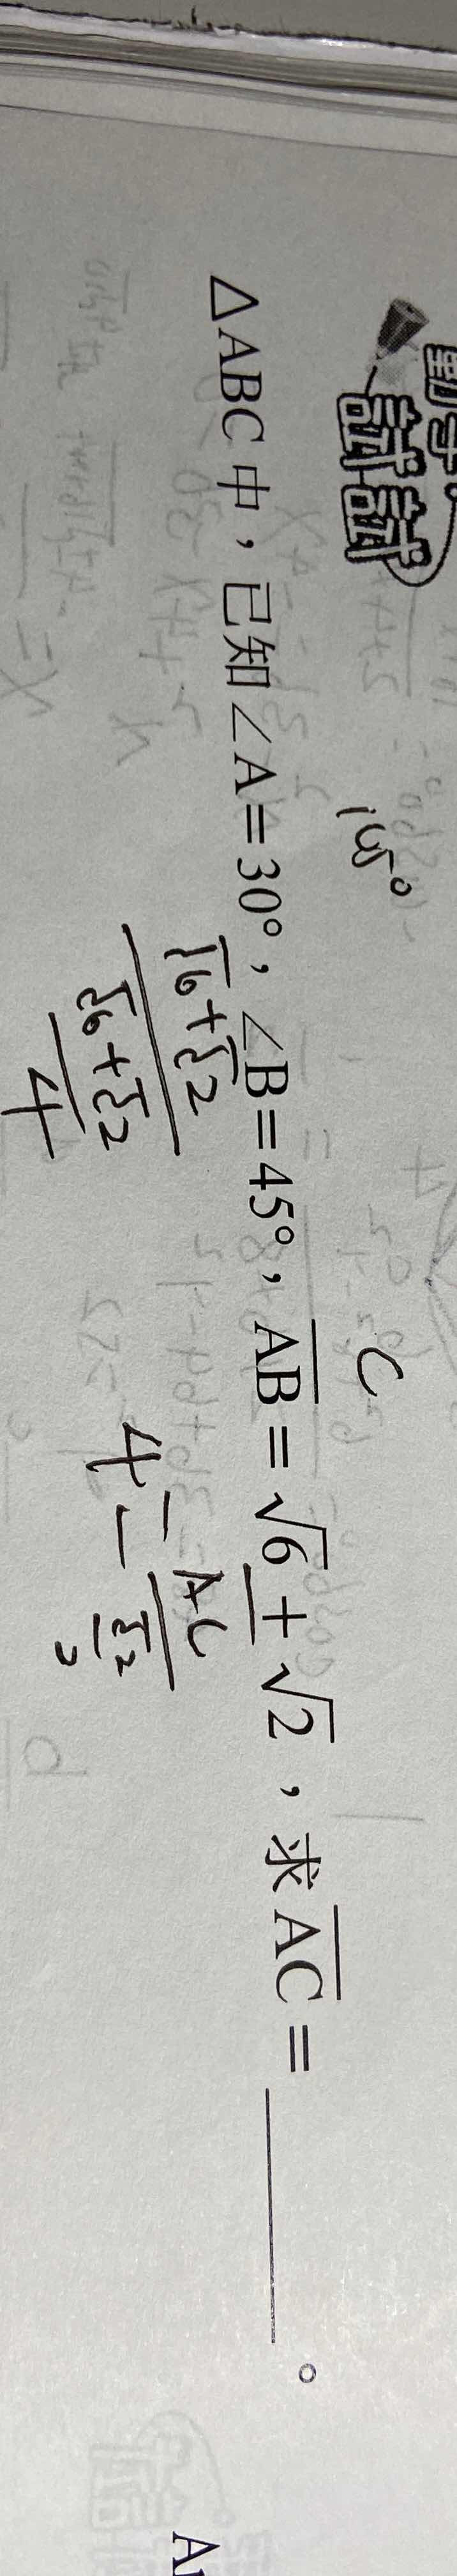 動手
試試
△ABC 中，已知∠A=30°，∠B=45°，AB=√6+√2，求AC=______。
105°
C
√6+√2
√6+√2
4
4=
AC
√2
2